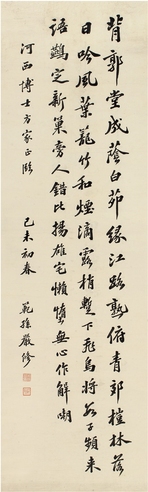 背郭堂成蔭白茆緣江路熟俯青郊榿林礙
日吟風葉籠竹和煙滴露梢蹔下飛烏將數子頻來
語鷰定新巢旁人錯比揚雄宅懶惰無心作解嘲
河西博士方家正
己未初春
範孫嚴修